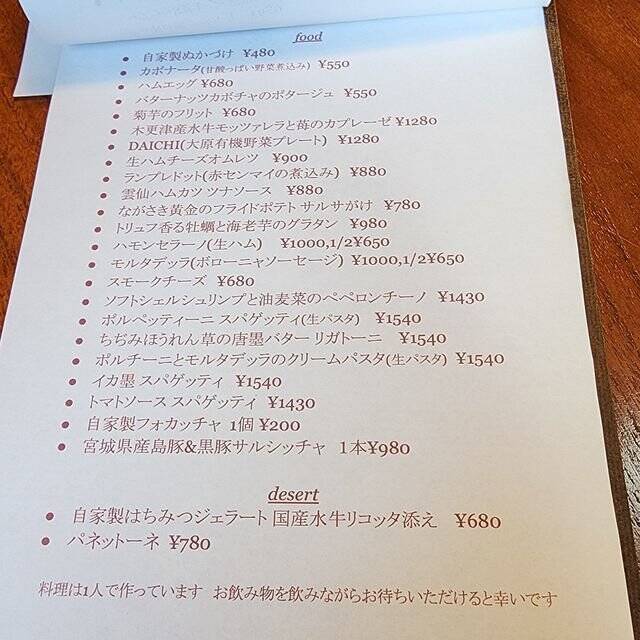 food
● 自家製ぬかづけ ¥480
● カポナータ(甘酸っぱい野菜煮込み) ¥550
● ハムエッグ ¥680
● バターナッツカボチャのポタージュ ¥550
● 菊芋のフリット ¥680
● 木更津産水牛モッツァレラと苺のカプレーゼ ¥1280
● DAICHI(大原有機野菜プレート) ¥1280
● 生ハムチーズオムレツ ¥900
● ランプレドット(赤センマイの煮込み) ¥880
● 雲仙ハムカツ ツナソース ¥880
● ながさき黄金のフライドポテト サルサがけ ¥780
● トリュフ香る牡蠣と海老芋のグラタン ¥980
● ハモンセラーノ(生ハム) ¥1000,1/2¥650
● モルタデッラ(ボローニャソーセージ) ¥1000,1/2¥650
● スモークチーズ ¥680
● ソフトシェルシュリンプと油麦菜のペペロンチーノ ¥1430
● ポルペッティーニ スパゲッティ(生パスタ) ¥1540
● ちぢみほうれん草の唐墨バター リガトーニ ¥1540
● ポルチーニとモルタデッラのクリームパスタ(生パスタ) ¥1540
● イカ墨 スパゲッティ ¥1540
● トマトソース スパゲッティ ¥1430
● 自家製フォカッチャ 1個 ¥200
● 宮城県産島豚&黒豚サルシッチャ 1本¥980
desert
● 自家製はちみつジェラート 国産水牛リコッタ添え ¥680
● パネットーネ ¥780
料理は1人で作っています お飲み物を飲みながらお待ちいただけると幸いです